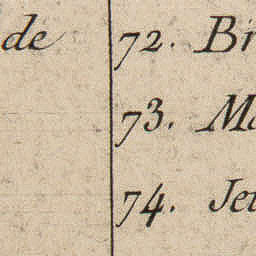 de
72. Bi
73. Ma
74. Jet